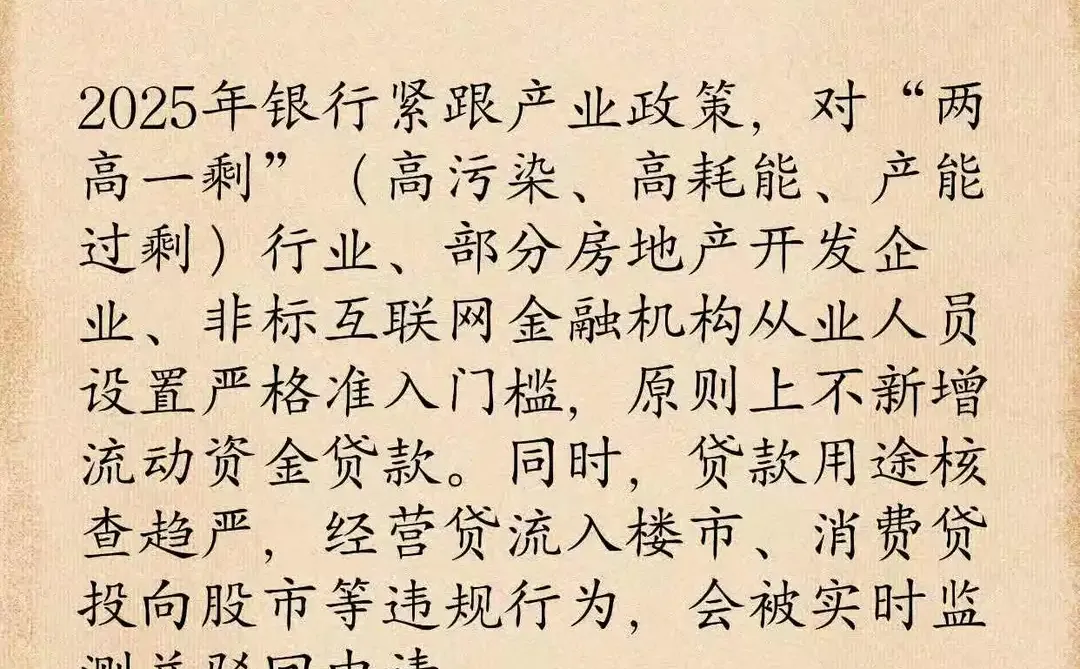 2025年银行紧跟产业政策，对“两
高一剩”（高污染、高耗能、产能
过剩）行业、部分房地产开发企
业、非标互联网金融机构从业人员
设置严格准入门槛，原则上不新增
流动资金贷款。同时，贷款用途核
查趋严，经营贷流入楼市、消费贷
投向股市等违规行为，会被实时监
测并驳回申请